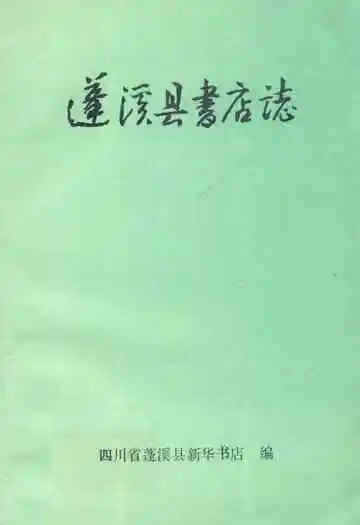 蓬溪县书店誌
四川省蓬溪县新华书店 编